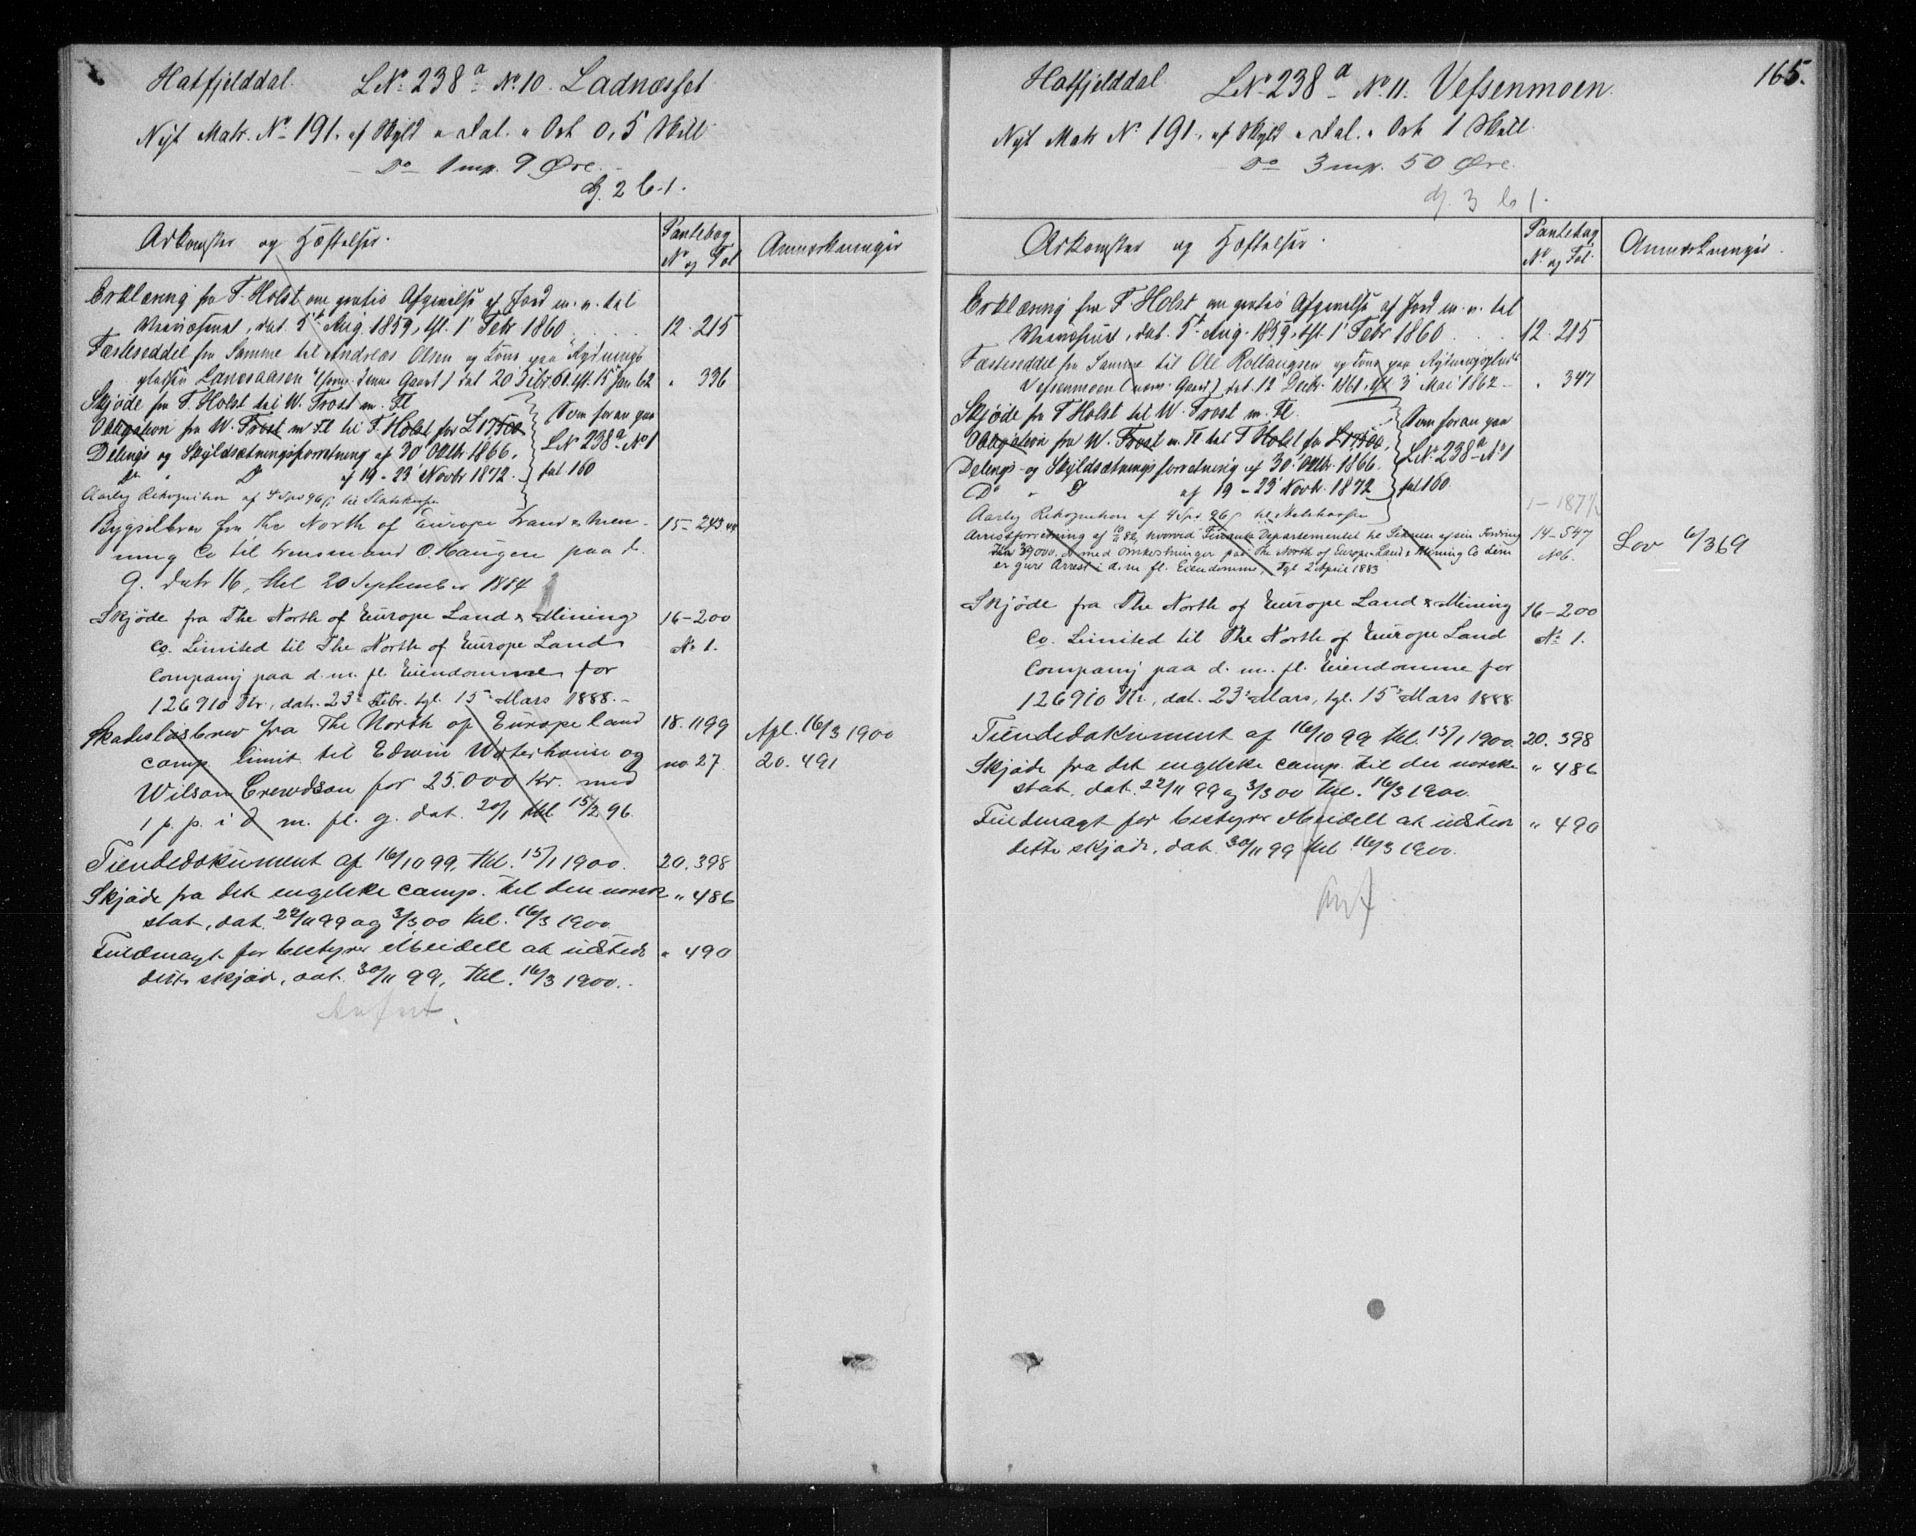 Hatfjelddal. LNo 238a No 10. Ladnæsset
Nyt Matr. No 191. af Skyld " Dal. " Ort 0,5 Skill
Do 1 mrk. 9 Øre.
g. 2 b. 1.
Adkomster og Hæftelser.
Pantebog
No og Fol
Anmærkninger
Erklæring fra F. Holst om gratis Afgivelse af Jord m. v. til
dat. 5t Aug. 1859, tgl. 1 Febr 1860
12. 215
Fæsteseddel fra Samme til Andreas Olsen og Kone paa Rydnings
pladsen (under denne Gaard) dat 20 Febr. 61. tgl. 15 Jan 62
" 336
Skjøde fra F. Holst til W. Frost m. Fl
Obligation fra W. Frost m Fl til F. Holst for £17500
Delings og Skyldsætningsforretning af 30 Oktbr. 1866.
Do " D af 19 - 23 Novbr 1872.
Som foran paa
LNo 238a No 1
fol 160
Aarlig Rekognition af 4 Spd 96 s til Statskassen
Bygselbrev fra The North of Europe Land & Men-
ning Co til Lensmand O. Haugen paa d.
G. datr 16, thl 20 September 1884
15-243
Skjøde fra The North of Europe Land & Mining
Co. Limited til The North of Europe Land
Company paa d. m. fl. Eiendomme for
126910 Kr., datr. 23 Febr. tgl. 15 Mars 1888.
16-200
No 1.
Skadesløsbrev fra The North of Europe land
comp. limit. til Edwin Waterhouse og
Wilson Crewdson for 25.000 Kr. med
1 p. p. i d. m. fl. g. dat. 20/1 thl 15/2 96.
18. 1199
no 27.
Apl. 16/3 1900
20. 491
Tiendedokument af 16/10 99, thl. 15/1 1900.
20. 398
Skjøde fra det engelske comp. til den norske
stat, dat. 22/11 99 og 3/3 00 thl. 16/3 1900
" 486
Fuldmagt for bestyrer Meidell at udstede
dette skjøde, dat. 30/11 99, thl. 16/3 1900.
" 490
Anført
165.
Hatfjelddal LNo 238a No 11. Vefsenmoen.
Nyt Matr No 191. af Skyld " Dal. " Ort 1 Skill.
Do 3 mrk. 50 Øre.
g. 3 b 1.
Adkomster og Hæftelser.
Pantebog
No og Fol.
Anmærkninger.
Erklæring fra F. Holst om gratis Afgivelse af Jord m. v. til
dat. 5t Aug. 1859. tgl. 1 Febr 1860
12. 215
Fæsteseddel fra Samme til Ole Rollaugsen og Kone paa Rydningspladsen
Vefsenmoen (under Gaard) dat. 12 Decbr. 1861. tgl 3 Mai 1862
" 347
Skjøde fra F Holst til W. Frost m. Fl.
Obligation fra W. Frost m Fl til F Holst for £17500,
Delings- og Skyldsætningsforretning af 30. Oktbr. 1866.
Do " D af 19 - 23 Novb. 1872
Som foran paa
LNo 238a No 1
fol 160.
1-187
Aarlig Rekognition af 4 Spd. 96 s til Statskassen
Arrestforretning af 82, hvorved Finants Departementet til Sikkerhed af sin Fordring
Kr 39000. med omkostninger paa The North of Europe Land & Mining Co Lim
er gjort Arrest i d. m fl. Eiendomme, Tgl 2 April 1883
14-547
No 6.
Lov 6/369
Skjøde fra The North of Europe Land & Mining
Co. Limited til The North of Europe Land
Company paa d. m. fl. Eiendomme for
126910 Kr, dat. 23 Mars, tgl. 15 Mars 1888
16-200
No 1.
Tiendedokument af 16/10 99 thl. 15/1 1900.
20. 398
Skjøde fra det engelske comp. til den norske
stat. dat. 22/11 99 og 3/3 00 thl. 16/3 1900.
" 486
Fuldmagt for bestyrer Meidell at udstede
dette skjøde, dat. 30/11 99 thl 16/3 1900.
" 490
Anf.